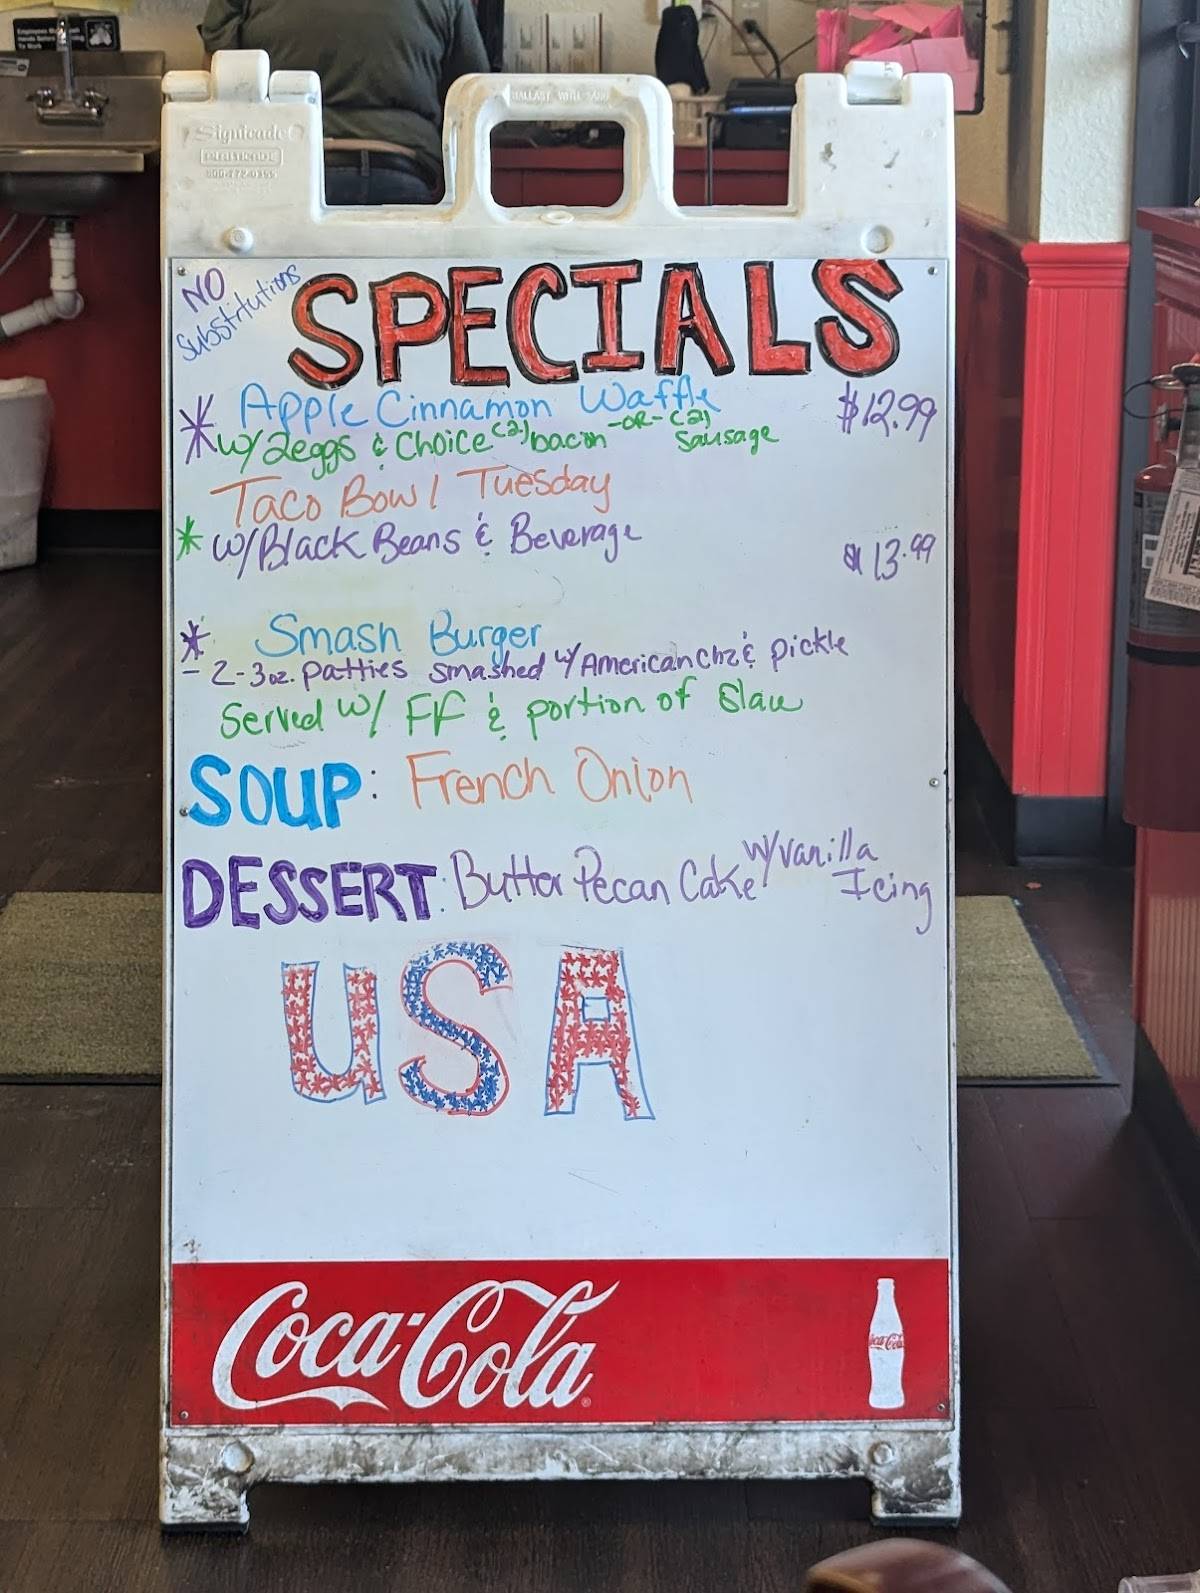 Employees Must Wash
Hands Before Returning
To Work
BALLAST WITH SAND
Signicade
800-472-0355
NO
Substitutions
SPECIALS
* Apple Cinnamon Waffle $12.99
w/ 2eggs & Choice (2) bacon -OR- (2) Sausage
Taco Bowl Tuesday
* w/Black Beans & Beverage $13.99
* Smash Burger
- 2-3oz. patties smashed w/ American chz & pickle
Served w/ FF & portion of Slaw
SOUP: French Onion
DESSERT: Butter Pecan Cake w/vanilla
Icing
USA
Coca-Cola
Coca-Cola